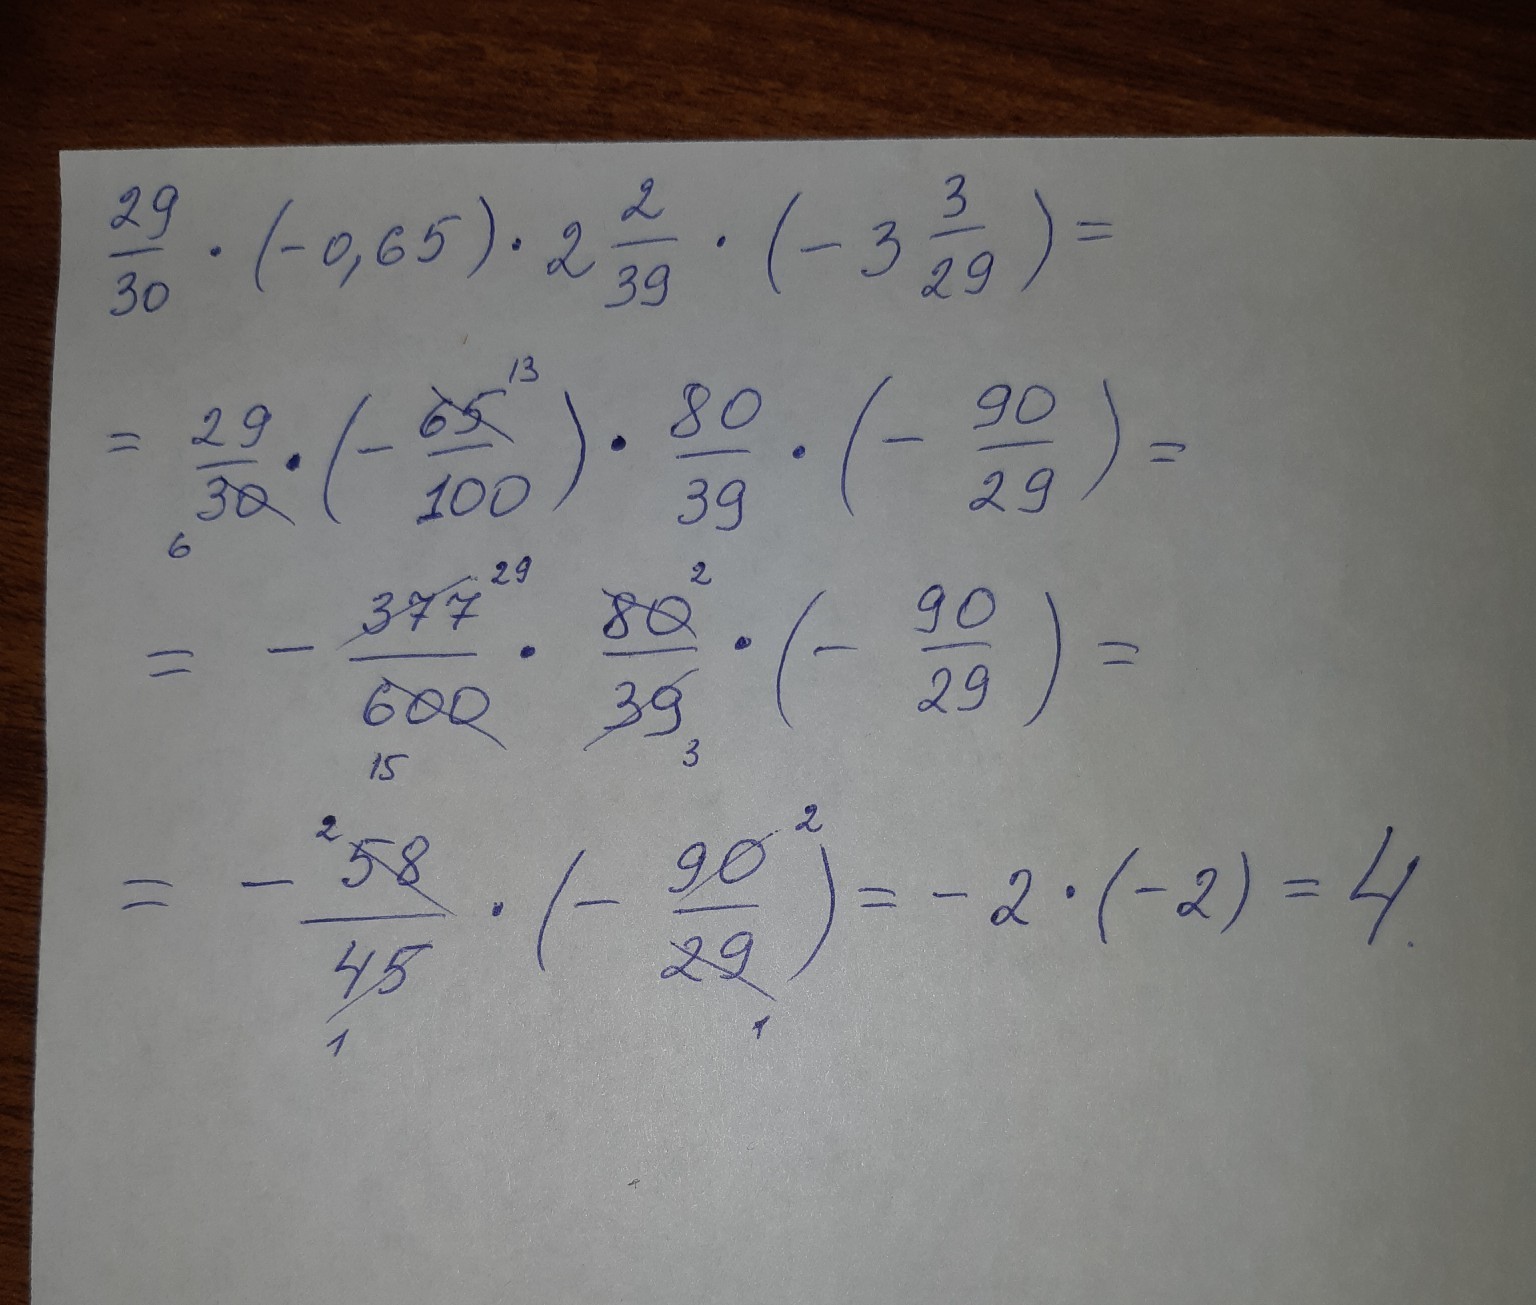 29/30 · (-0,65) · 2 2/39 · (-3 3/29) =
= 29/30 6 · (-65/100 13) · 80/39 · (-90/29) =
= -377/600 29 15 · 80/39 2 3 · (-90/29) =
= -2 58/45 1 · (-90/29 2 1) = -2 · (-2) = 4.